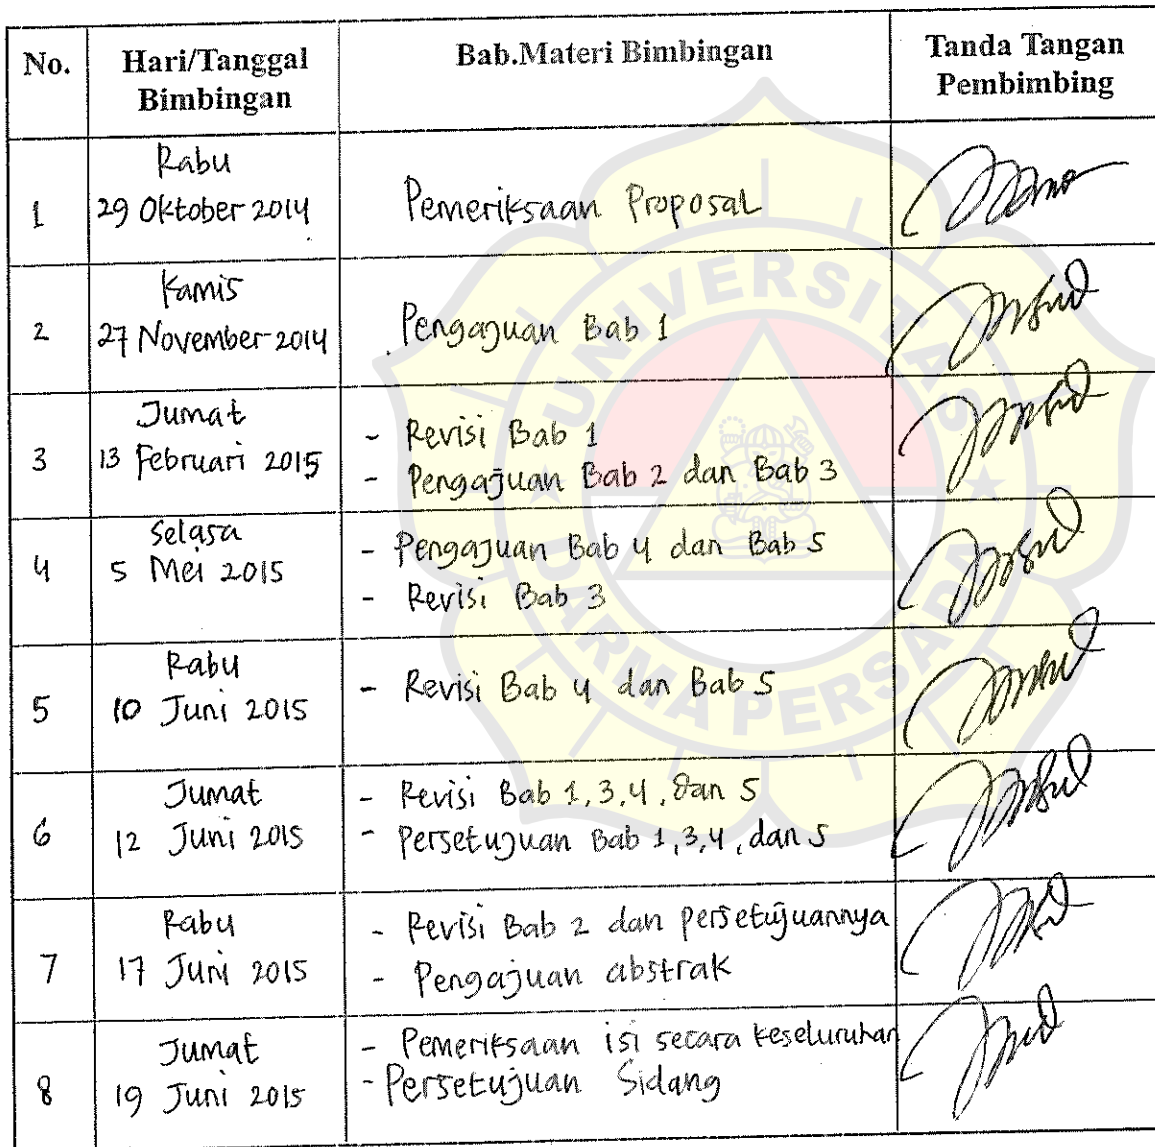 No. Hari/Tanggal Bimbingan Bab.Materi Bimbingan Tanda Tangan Pembimbing
1 Rabu
29 Oktober 2014 Pemeriksaan Proposal
2 Kamis
27 November 2014 Pengajuan Bab 1
3 Jumat
13 Februari 2015
- Revisi Bab 1
- Pengajuan Bab 2 dan Bab 3
4 Selasa
5 Mei 2015
- Pengajuan Bab 4 dan Bab 5
- Revisi Bab 3
5 Rabu
10 Juni 2015
- Revisi Bab 4 dan Bab 5
6 Jumat
12 Juni 2015
- Revisi Bab 1, 3, 4, dan 5
- Persetujuan Bab 1, 3, 4, dan 5
7 Rabu
17 Juni 2015
- Revisi Bab 2 dan persetujuannya
- Pengajuan abstrak
8 Jumat
19 Juni 2015
- Pemeriksaan isi secara keseluruhan
- Persetujuan Sidang
UNIVERSITAS
DARMA PERSADA